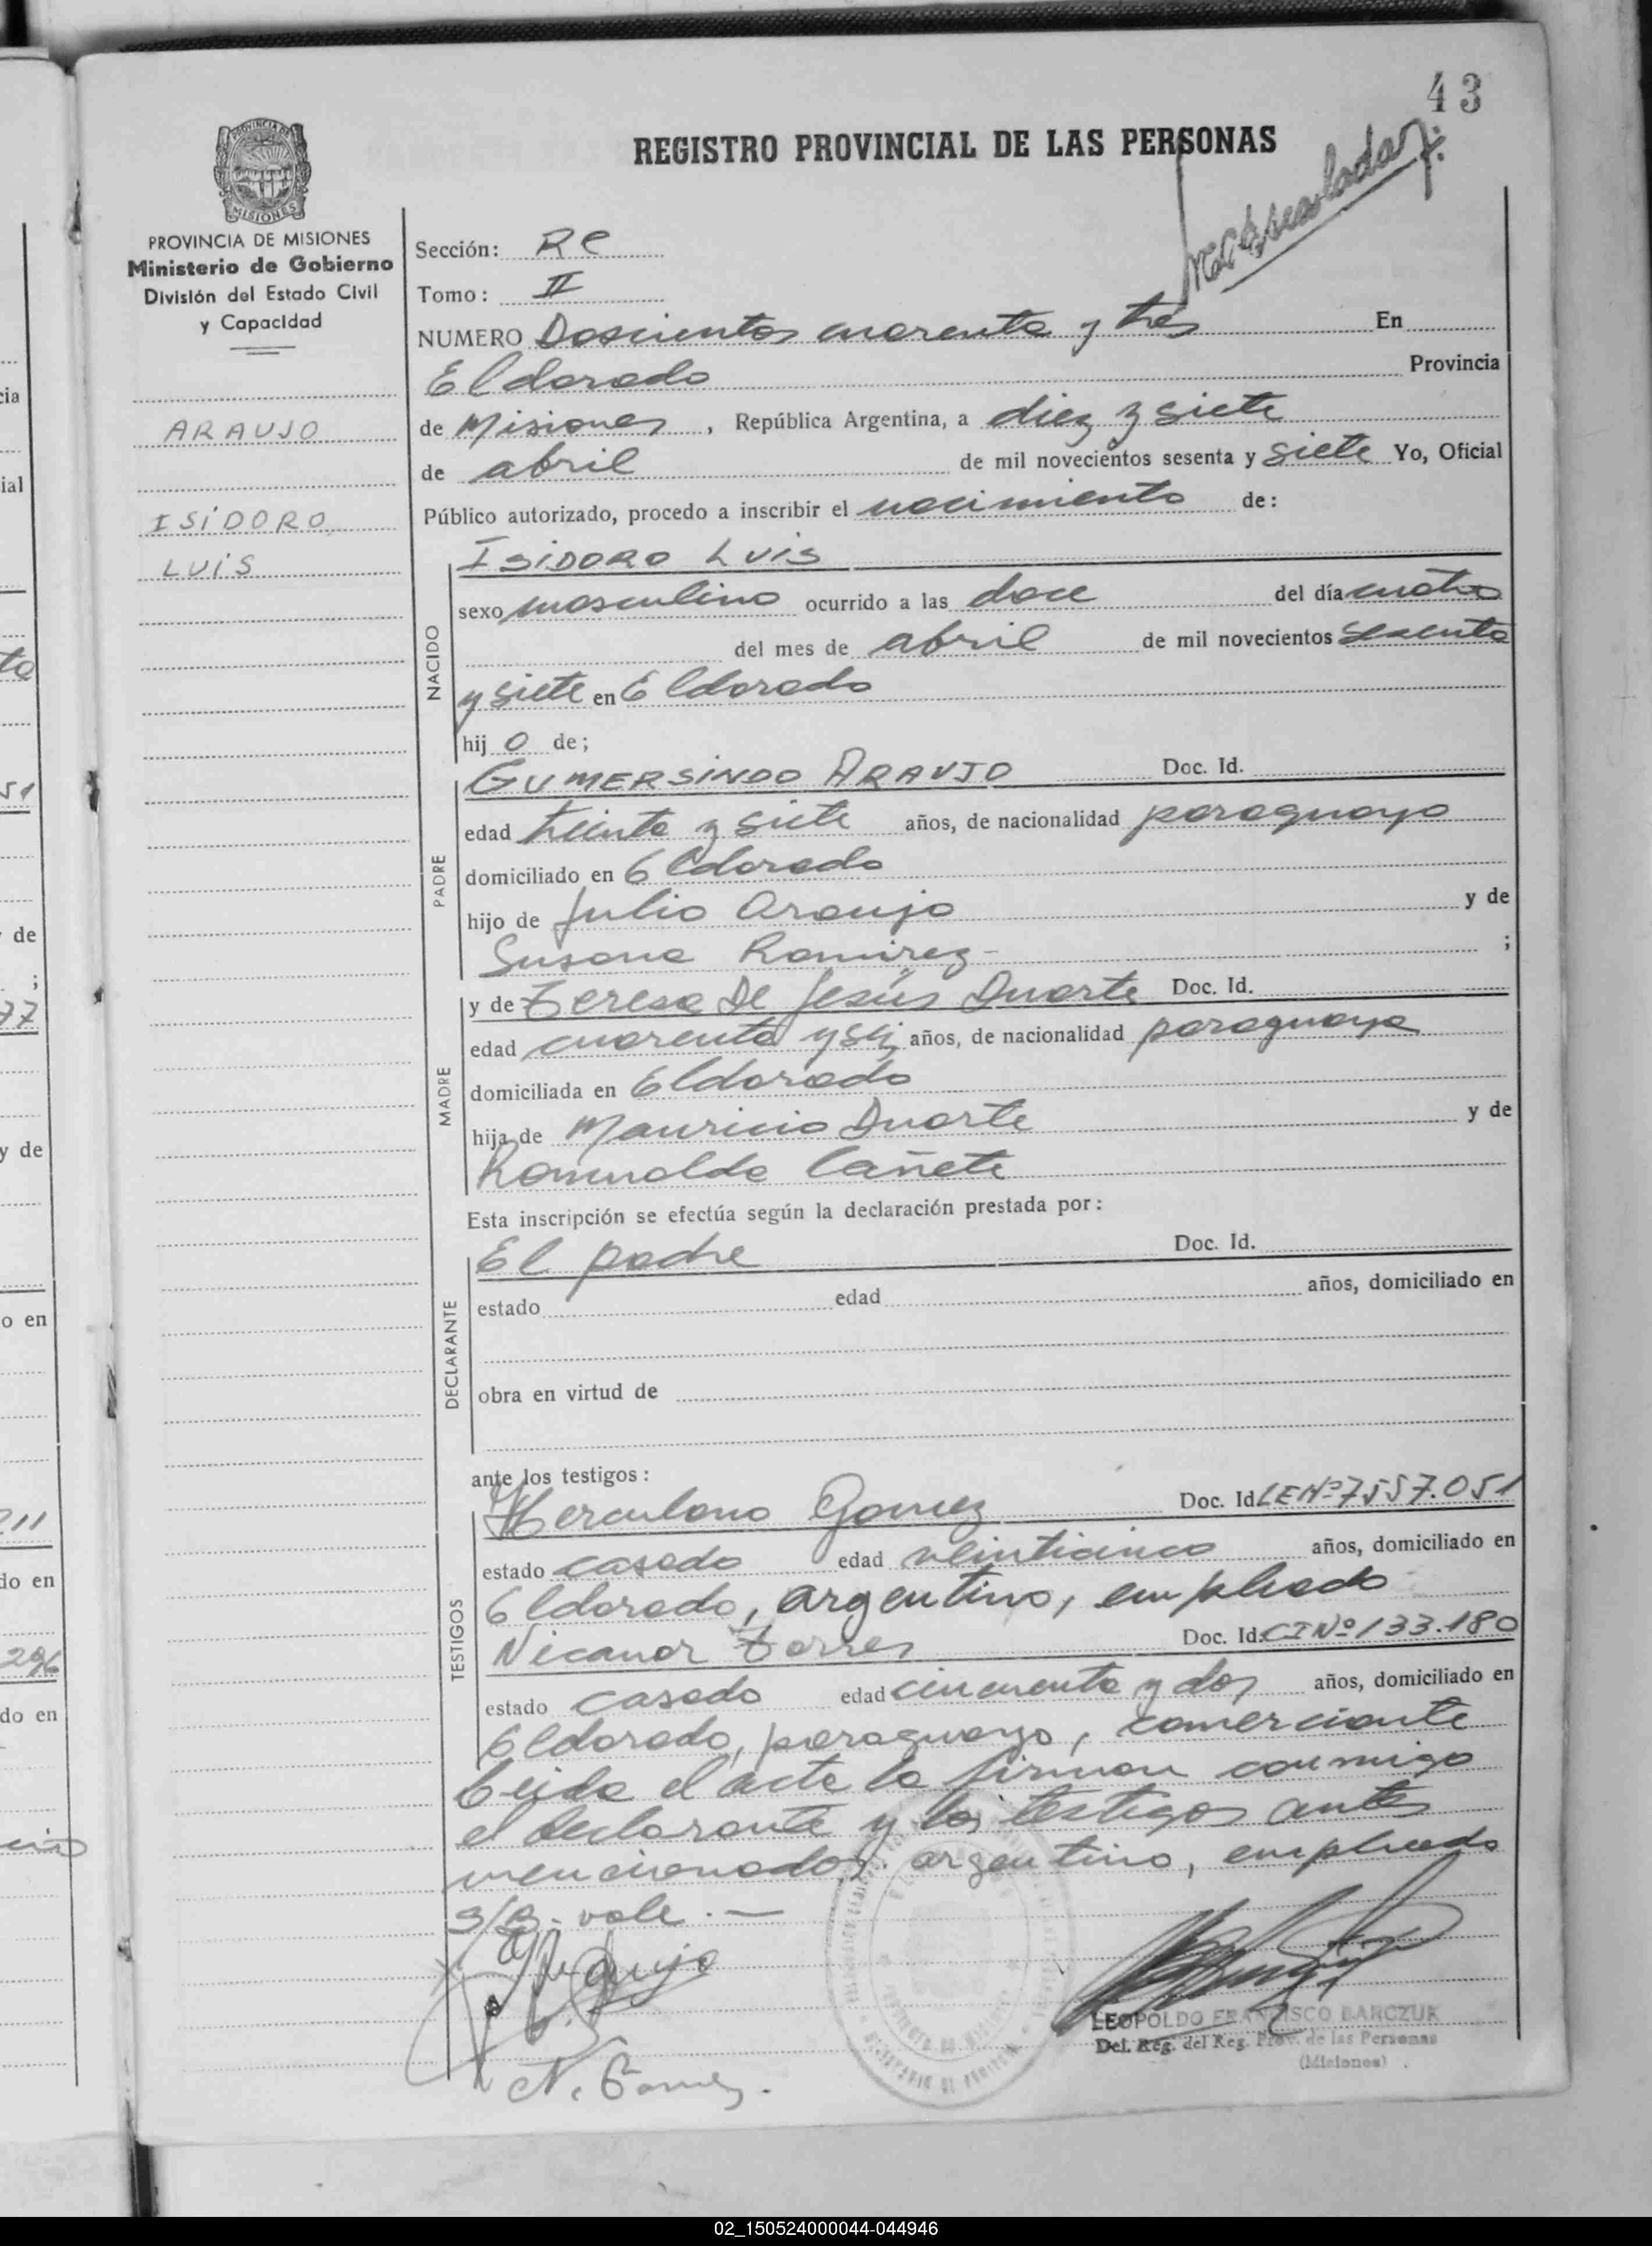 43
REGISTRO PROVINCIAL DE LAS PERSONAS
PROVINCIA DE MISIONES
Ministerio de Gobierno
División del Estado Civil
y Capacidad
ARAUJO
ISIDORO
LUIS
Sección: RC
Tomo: II
NUMERO Doscientos cuarenta y tres En
Eldorado Provincia
de Misiones, República Argentina, a diez y siete
de abril de mil novecientos sesenta y siete Yo, Oficial
Público autorizado, procedo a inscribir el nacimiento de:
NACIDO
ISIDORO LUIS
sexo masculino ocurrido a las doce del día cuatro
del mes de abril de mil novecientos sesenta
y siete en Eldorado
hij o de;
PADRE
GUMERSINDO ARAUJO Doc. Id.
edad treinta y siete años, de nacionalidad paraguayo
domiciliado en Eldorado
hijo de Julio Araujo y de
Susana Ramirez- ;
MADRE
y de Teresa De Jesús Duarte Doc. Id.
edad cuarenta y seis años, de nacionalidad paraguaya
domiciliada en Eldorado
hija de Mauricio Duarte y de
Romualda Cañete
Esta inscripción se efectúa según la declaración prestada por:
DECLARANTE
El padre Doc. Id.
estado edad años, domiciliado en
obra en virtud de
ante los testigos:
TESTIGOS
Herculano Gomez Doc. Id. LE Nº 7557.051
estado casado edad veinticinco años, domiciliado en
Eldorado, argentino, empleado
Nicanor Torres Doc. Id. CI Nº 133.180
estado casado edad cincuenta y dos años, domiciliado en
Eldorado, paraguayo, comerciante
Leida el acta la firman conmigo
el declarante y los testigos antes
mencionados. argentino, empleado
s/b. vale.—
LEOPOLDO FRANCISCO BARCZUK
Del. Reg. del Reg. Prov. de las Personas
(Misiones)
02_150524000044-044946